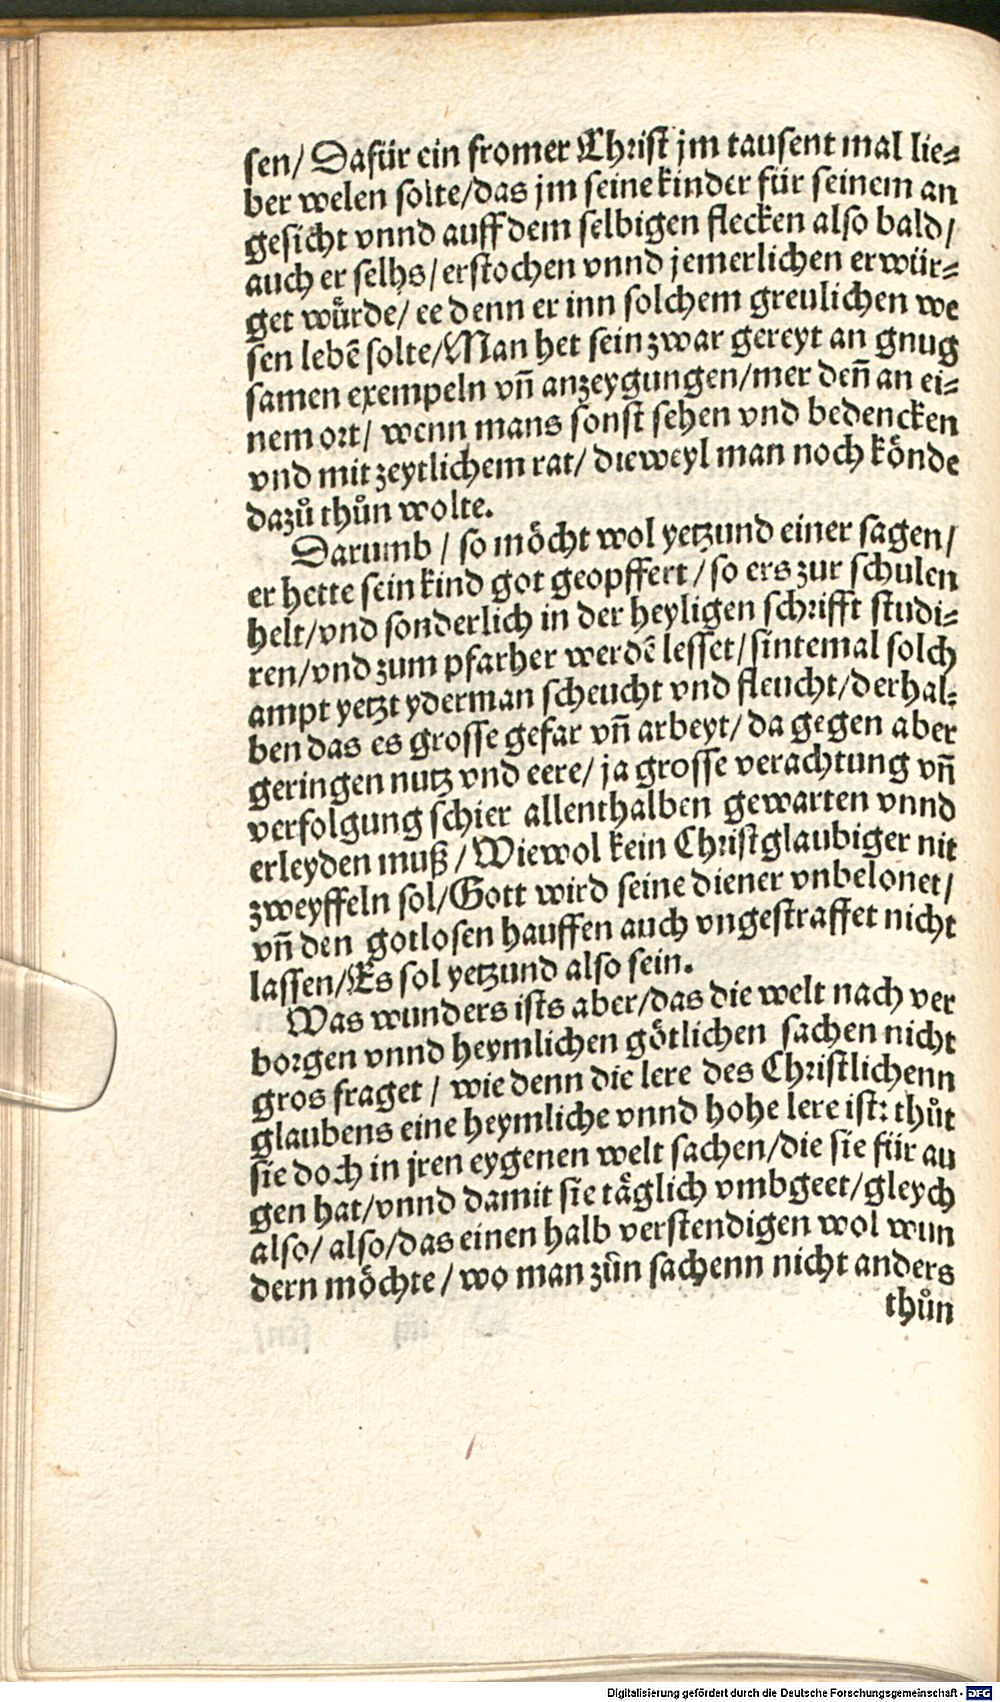 sen/ Dafür ein fromer Christ jm tausent mal lie⸗
ber welen solte/das jm seine kinder für seinem an
gesicht vnnd auff dem selbigen flecken also bald/
auch er selbs/ erstochen vnnd jemerlichen erwür⸗
get wuͤrde/ ee denn er inn solchem greulichen we
sen lebē solte/Man het sein zwar gereyt an gnug
samen exempeln vñ anzeygungen/mer deñ an ei⸗
nem ort/ wenn mans sonst sehen vnd bedencken
vnd mit zeytlichem rat/ dieweyl man noch koͤnde
dazuͦ thuͦn wolte.
Darumb / so moͤcht wol yetzund einer sagen/
er hette sein kind got geopffert / so ers zur schulen
helt/vnd sonderlich in der heyligen schrifft studi⸗
ren/vnd zum pfarher werdē lesset/sintemal solch
ampt yetzt yderman scheucht vnd fleucht/derhal⸗
ben das es grosse gefar vñ arbeyt/ da gegen aber
geringen nutz vnd eere/ ja grosse verachtung vñ
verfolgung schier allenthalben gewarten vnnd
erleyden muß / Wiewol kein Christglaubiger nit
zweyffeln sol/Gott wird seine diener vnbelonet/
vñ den gotlosen hauffen auch vngestraffet nicht
lassen/Es sol yetzund also sein.
Was wunders ists aber/das die welt nach ver
borgen vnnd heymlichen goͤtlichen sachen nicht
gros fraget / wie denn die lere des Christlichenn
glaubens eine heymliche vnnd hohe lere ist: thuͦt
sie doch in jren eygenen welt sachen/die sie für au
gen hat/vnnd damit sie taͤglich vmbgeet/gleych
also/ also/das einen halb verstendigen wol wun
dern moͤchte / wo man zûn sachenn nicht anders
thuͦn
Digitalisierung gefördert durch die Deutsche Forschungsgemeinschaft - DFG